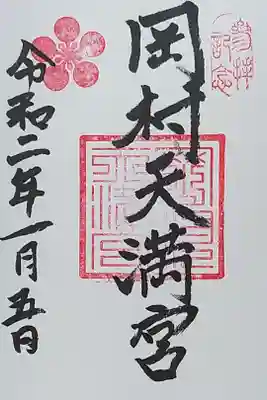 参拝記念
岡村天満宮
令和二年一月五日